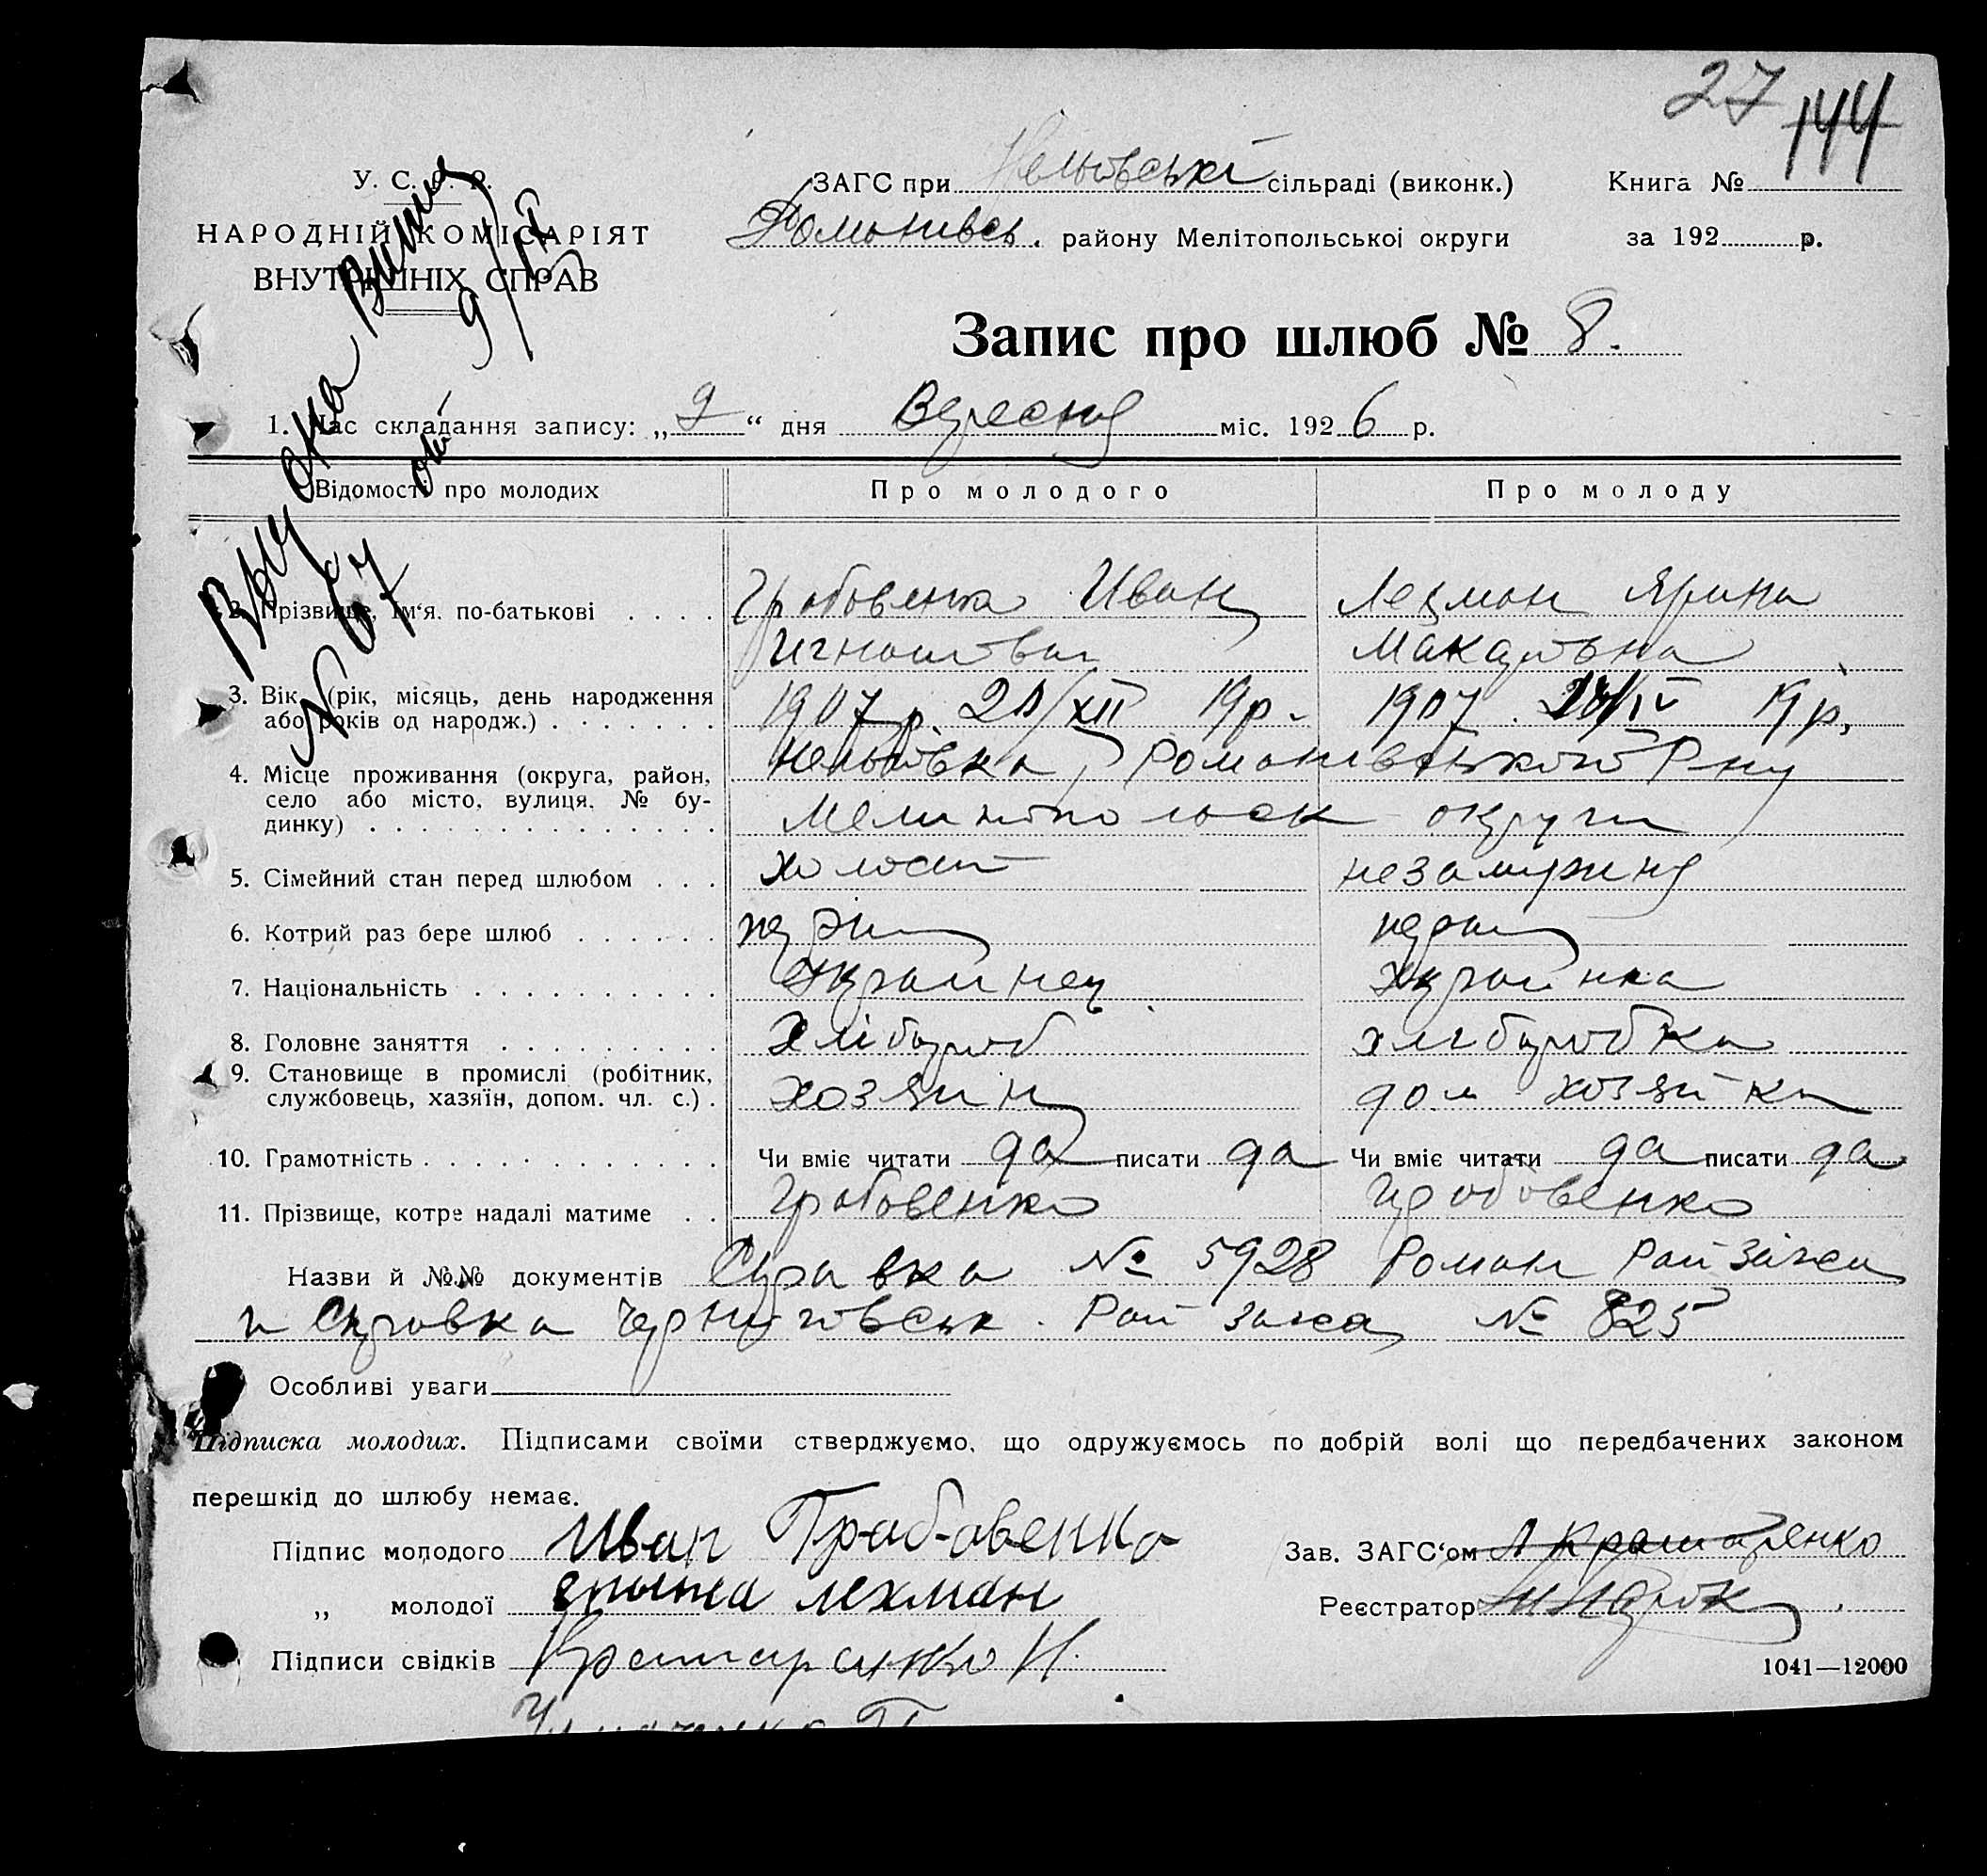 27 144
У. С. С. Р.
НАРОДНІЙ КОМІСАРІЯТ
ВНУТРІШНІХ СПРАВ
ЗАГС при Нельговські сільраді (виконк.)
Романивсь. району Мелітопольської округи
Книга №
за 192 р.
Запис про шлюб № 8.
1. Час складання запису: „9“ дня Вересня міс. 1926 р.
№ 67 от 9/IX
Відомості про молодих Про молодого Про молоду
2. Прізвище, ім‘я. по-батькові . . . . Грабовенко Иван Лехман Ярина
Игнатович Макаровна
3. Вік (рік, місяць, день народження 1907 р. 20/XII 19 р. 1907. /IV 19 р.
або років од народж.) . . . . . . .
4. Місце проживання (округа, район, Нельговка, Романівського Р-ну
село або місто, вулиця, № бу-
динку) . . . . . . . . . . . . . . . Мелитопольськ округи
5. Сімейний стан перед шлюбом . . . холост незамужня
6. Котрий раз бере шлюб . . . . . . перший перший
7. Національність . . . . . . . . . . Украинец Украинка
8. Головне заняття . . . . . . . . . Хлібороб хлиборобка
9. Становище в промислі (робітник, хозяин дом хозяйка
службовець, хазяїн, допом. чл. с.) .
10. Грамотність . . . . . . . . . . . . Чи вміє читати да писати да Чи вміє читати да писати да
11. Прізвище, котре надалі матиме . . Грабовенко Грабовенко
Назви й №№ документів Справка № 5928 Роман Рай Загса
и Справка Черниговськ. Рай Загса № 825
Особливі уваги
Підписка молодих. Підписами своїми стверджуємо, що одружуємось по добрій волі що передбачених законом
перешкід до шлюбу немає.
Підпис молодого Иван Грабовенко
Зав. ЗАГС‘ом
„ молодої лехман
Реєстратор
Підписи свідків
1041—12000